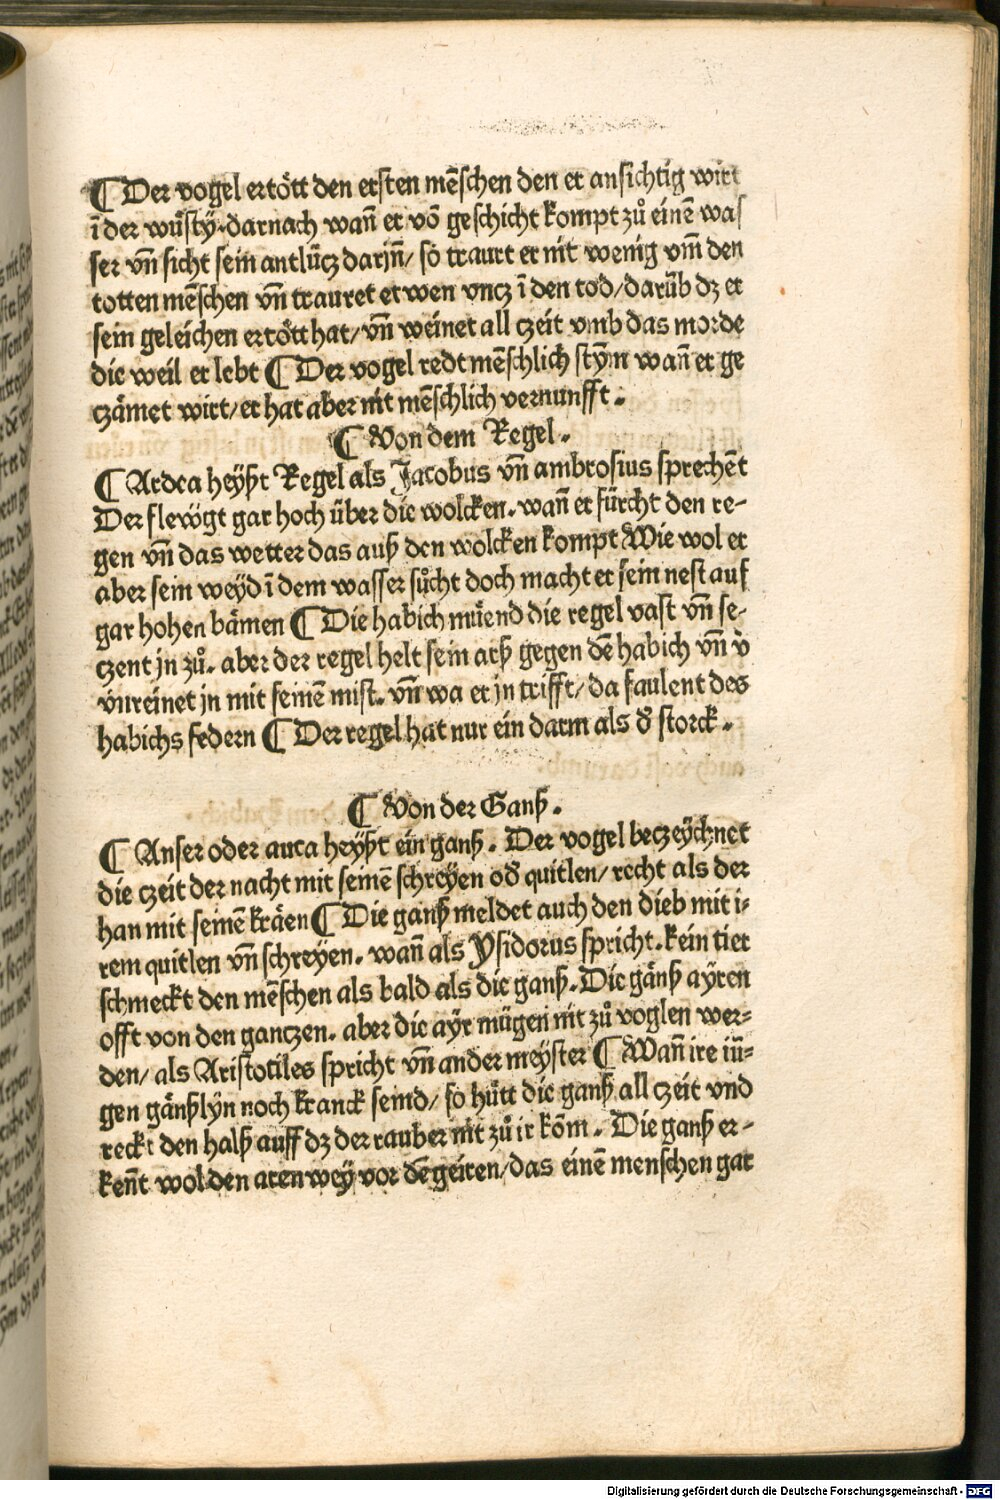 ¶ Der vogel ertött den ersten mēschen den er ansichtig wirt
ī der wůstÿ. darnach wañ er vō geschicht kompt zů einē was
ser vñ sicht sein antlücz darjñ/ so traurt er nit wenig vm̄ den
totten mēschen vñ trauret etwen vncz ī den tod/ darūb dz er
sein geleichen ertött hat/ vñ weinet all czeit vmb das morde
die weil er lebt ¶ Der vogel redt mēschlich stÿm wañ er ge
czämet wirt/ er hat aber nit mēschlich vernunfft.
¶ Von dem Regel.
¶ Ardea heyßt Regel als Jacobus vñ ambrosius sprechēt
Der flewgt gar hoch über die wolcken. wañ er fürcht den re-
gen vñ das wetter das auß den wolcken kompt Wie wol er
aber sein weÿd ī dem wasser sůcht doch macht er sein nest auf
gar hohen bämen ¶ Die habich müend die regel vast vñ se-
czent jn zů. aber der regel helt sein arß gegen dē habich vñ v̄
vnreinet jn mit seinē mist. vñ wa er jn trifft/ da faulent des
habichs federn ¶ Der regel hat nur ein darm als đ storck.
¶ Von der Ganß.
¶ Anser oder auca heÿßt ein ganß. Der vogel beczeÿchnet
die czeit der nacht mit seinē schreÿen ođ quitlen/ recht als der
han mit seinē kräen ¶ Die ganß meldet auch den dieb mit i-
rem quitlen vñ schreÿen. wañ als Ysidorus spricht. kein tier
schmeckt den mēschen als bald als die ganß. Die gänß aÿren
offt von den ganczen. aber die aÿr mügen nit zů voglen wer-
den/ als Aristotiles spricht vñ ander meÿster ¶ Wañ ire iū-
gen gänßlÿn noch kranck seind/ so hütt die ganß all czeit vnd
reckt den halß auff dz der rauber nit zů ir kōm. Die ganß er-
keñt wol den arenweÿ vor dē geiren/ das einē menschen gar
Digitalisierung gefördert durch die Deutsche Forschungsgemeinschaft - DFG